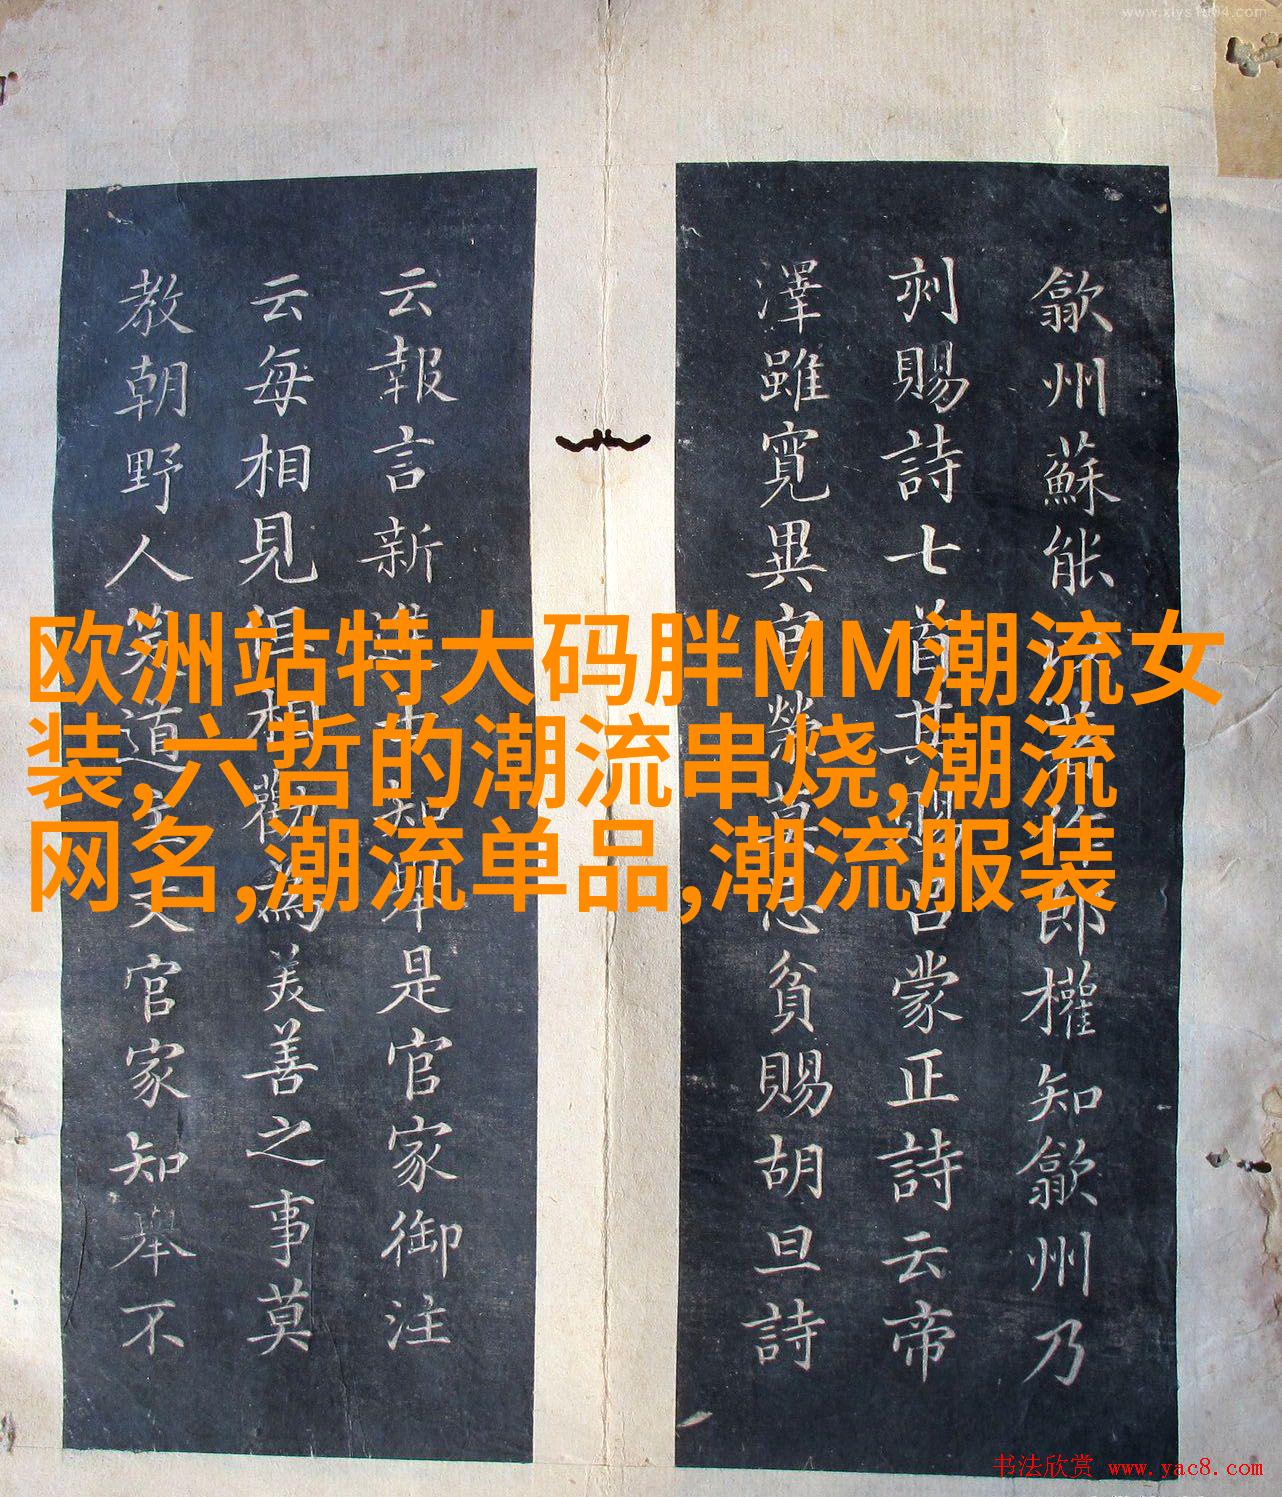 歙州蘇能郎權知歙州乃
刾賜詩七首其賜呂蒙正詩云帝
澤雖寛異官榮貧賜胡旦詩
云報言新進是官家御注
云每相見相勸為美善之事莫
教朝野人笑道官家知舉不
欧洲站特大码胖MM潮流女
装,六哲的潮流串烧,潮流
网名,潮流单品,潮流服装
书法欣赏 www.yac8.com